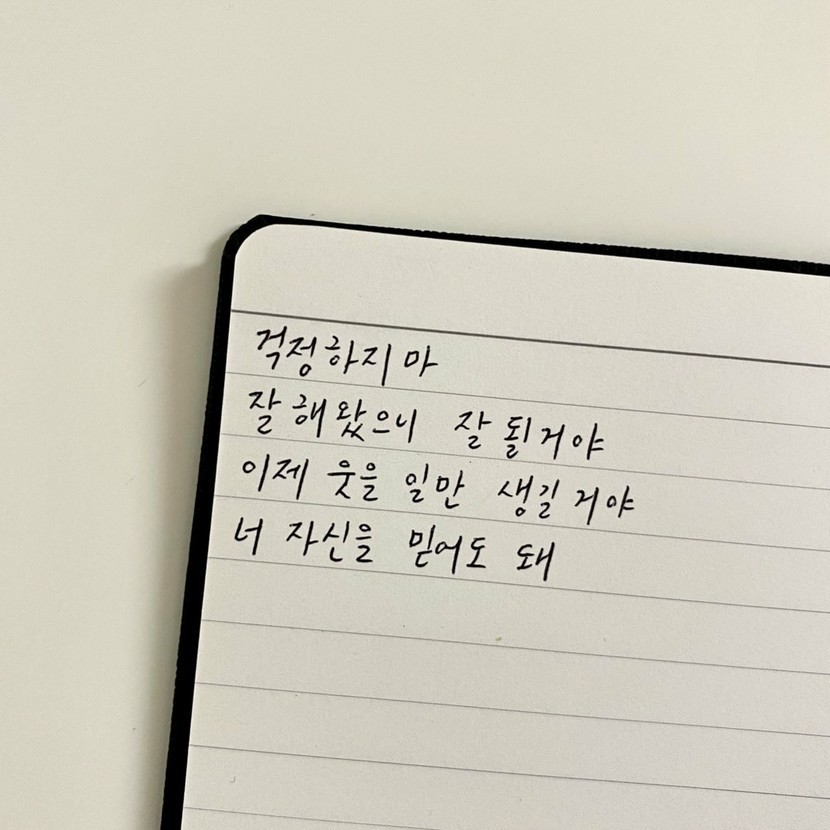 걱정하지마
잘 해왔으니 잘 될거야
이제 웃을 일만 생길 거야
너 자신을 믿어도 돼